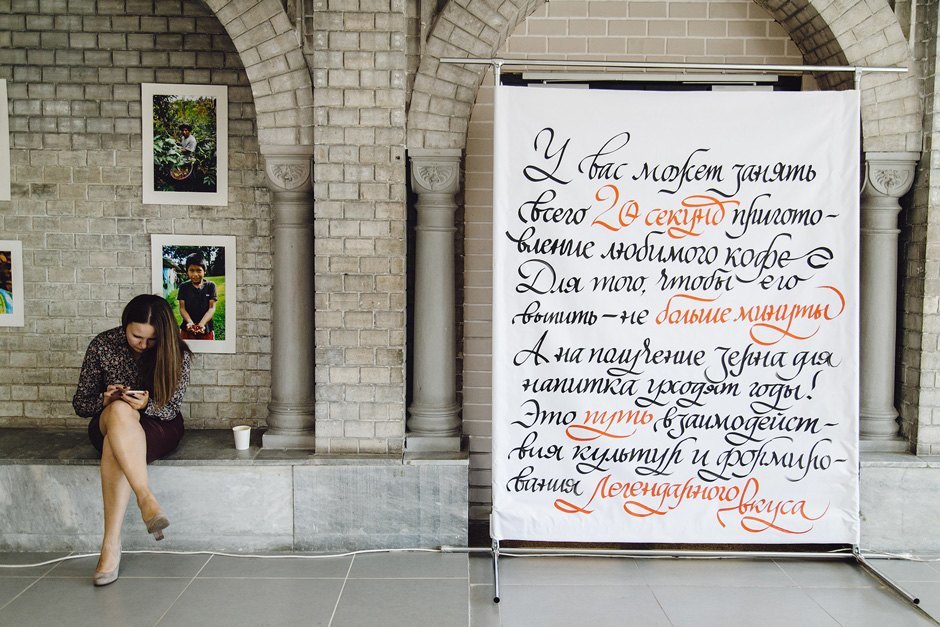 У вас может занять
всего 20 секунд пригото-
вление любимого кофе
Для того, чтобы его
выпить – не больше минуты
А на получение зерна для
напитка уходят годы!
Это путь взаимодейст-
вия культур и формиро-
вания Легендарного вкуса